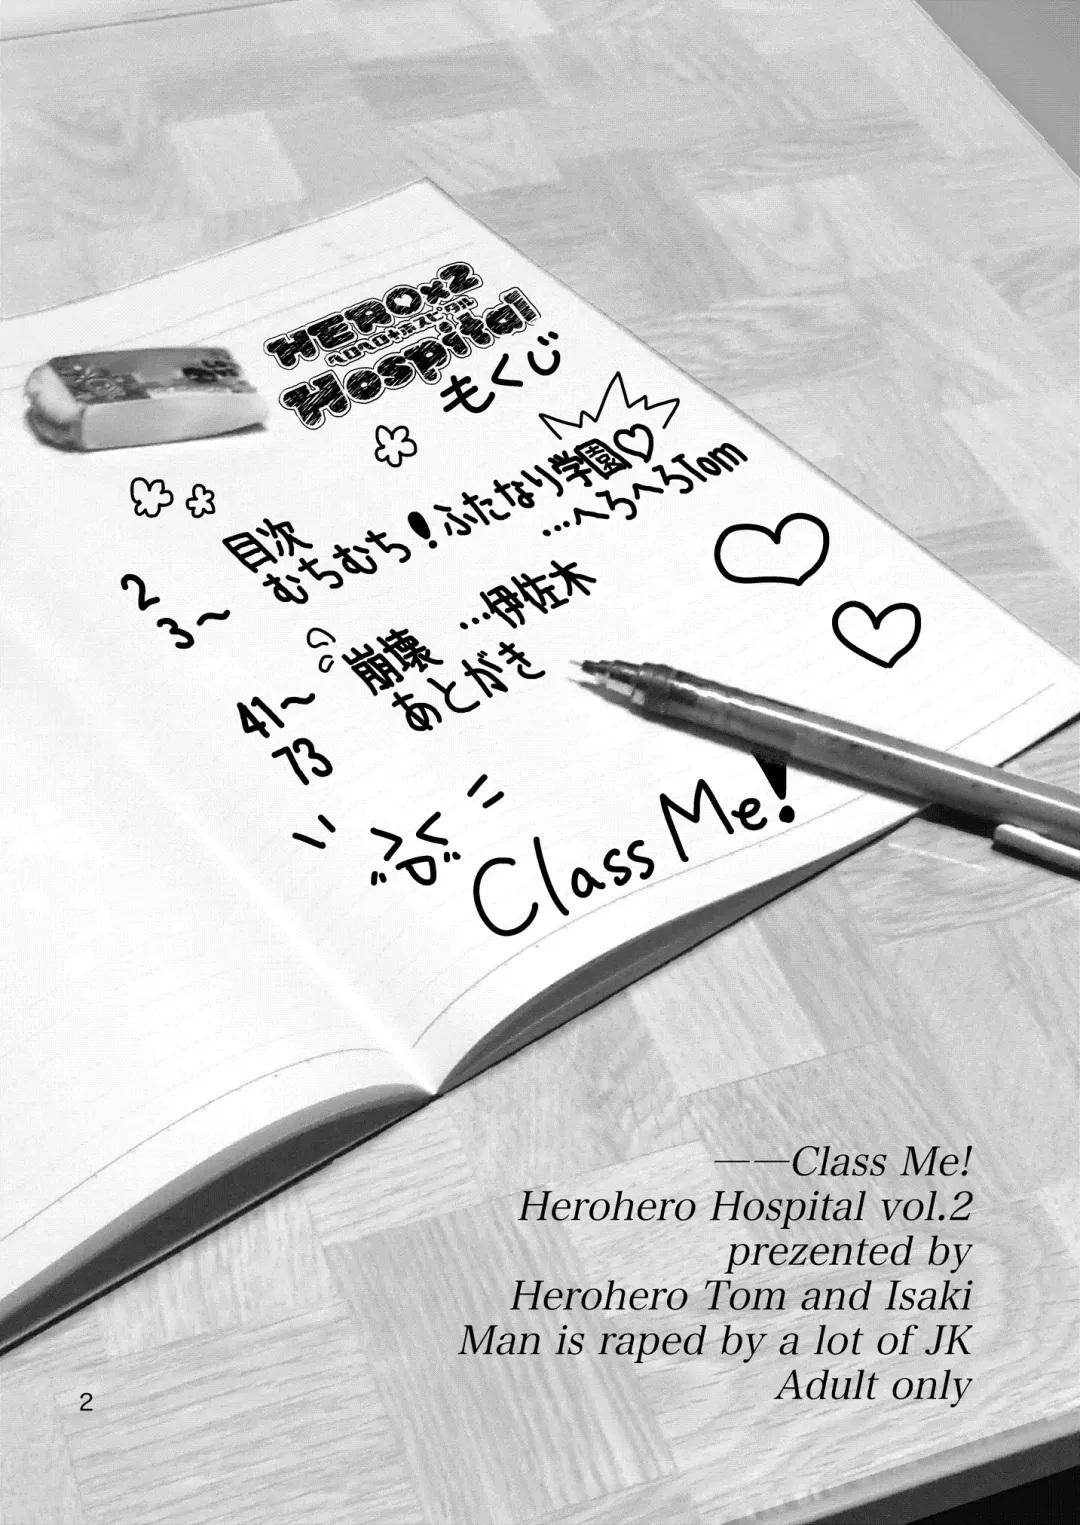 HERO×2
ヘロヘロ+ホスピタル
Hospital
もくじ
2 目次
3〜 むちむち!ふたなり学園♡
…へろへろTom
41〜 崩壊 …伊佐木
73 あとがき
Class Me!
――Class Me!
Herohero Hospital vol.2
prezented by
Herohero Tom and Isaki
Man is raped by a lot of JK
Adult only
2